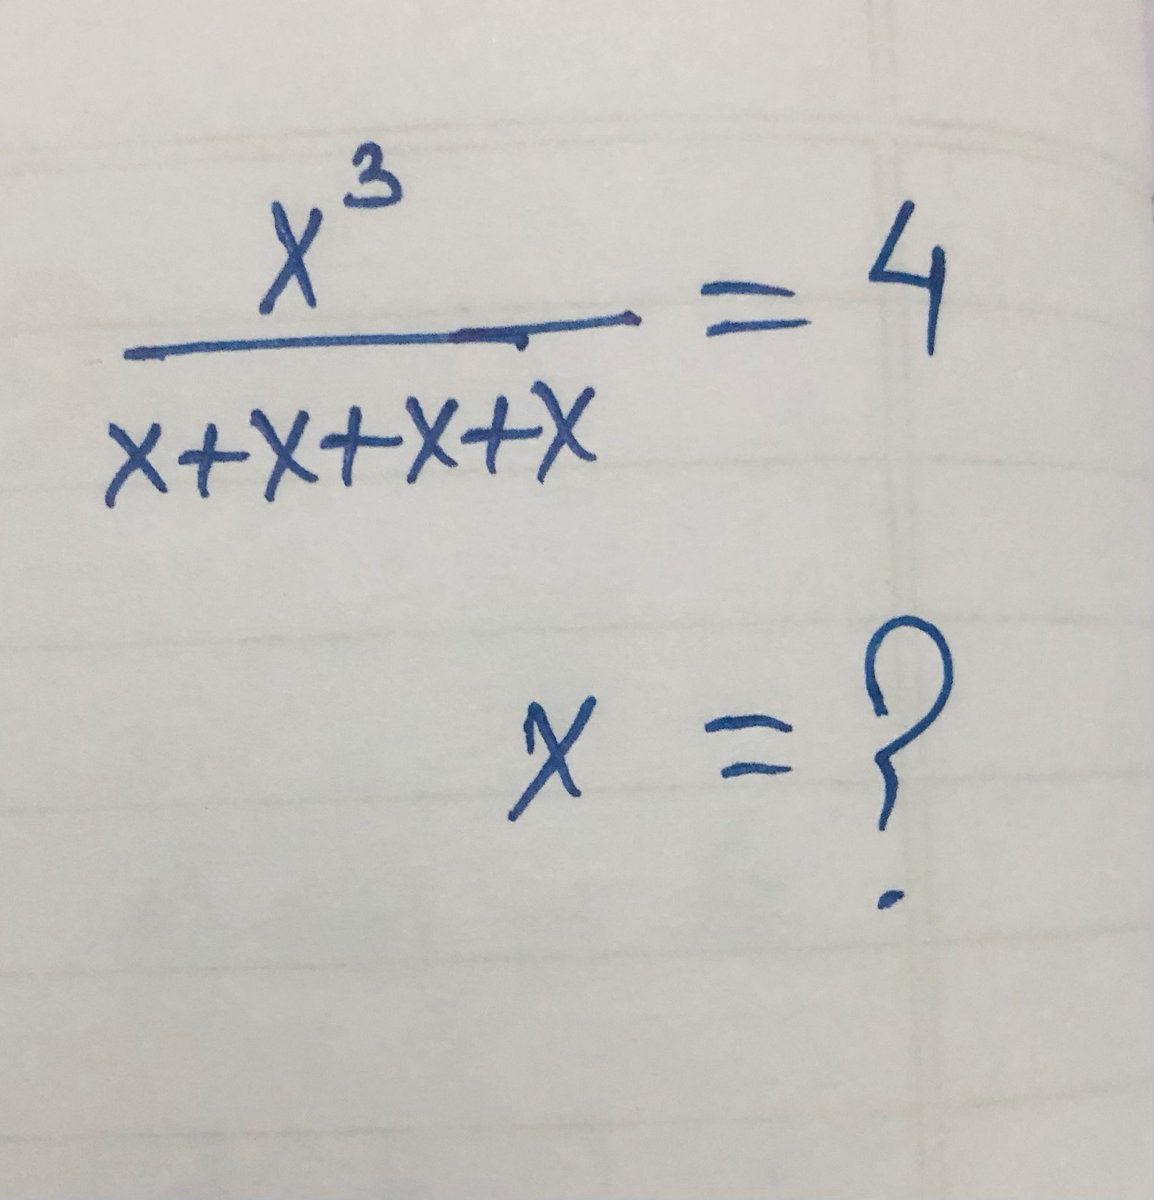 x³
x+x+x+x = 4
x = ?